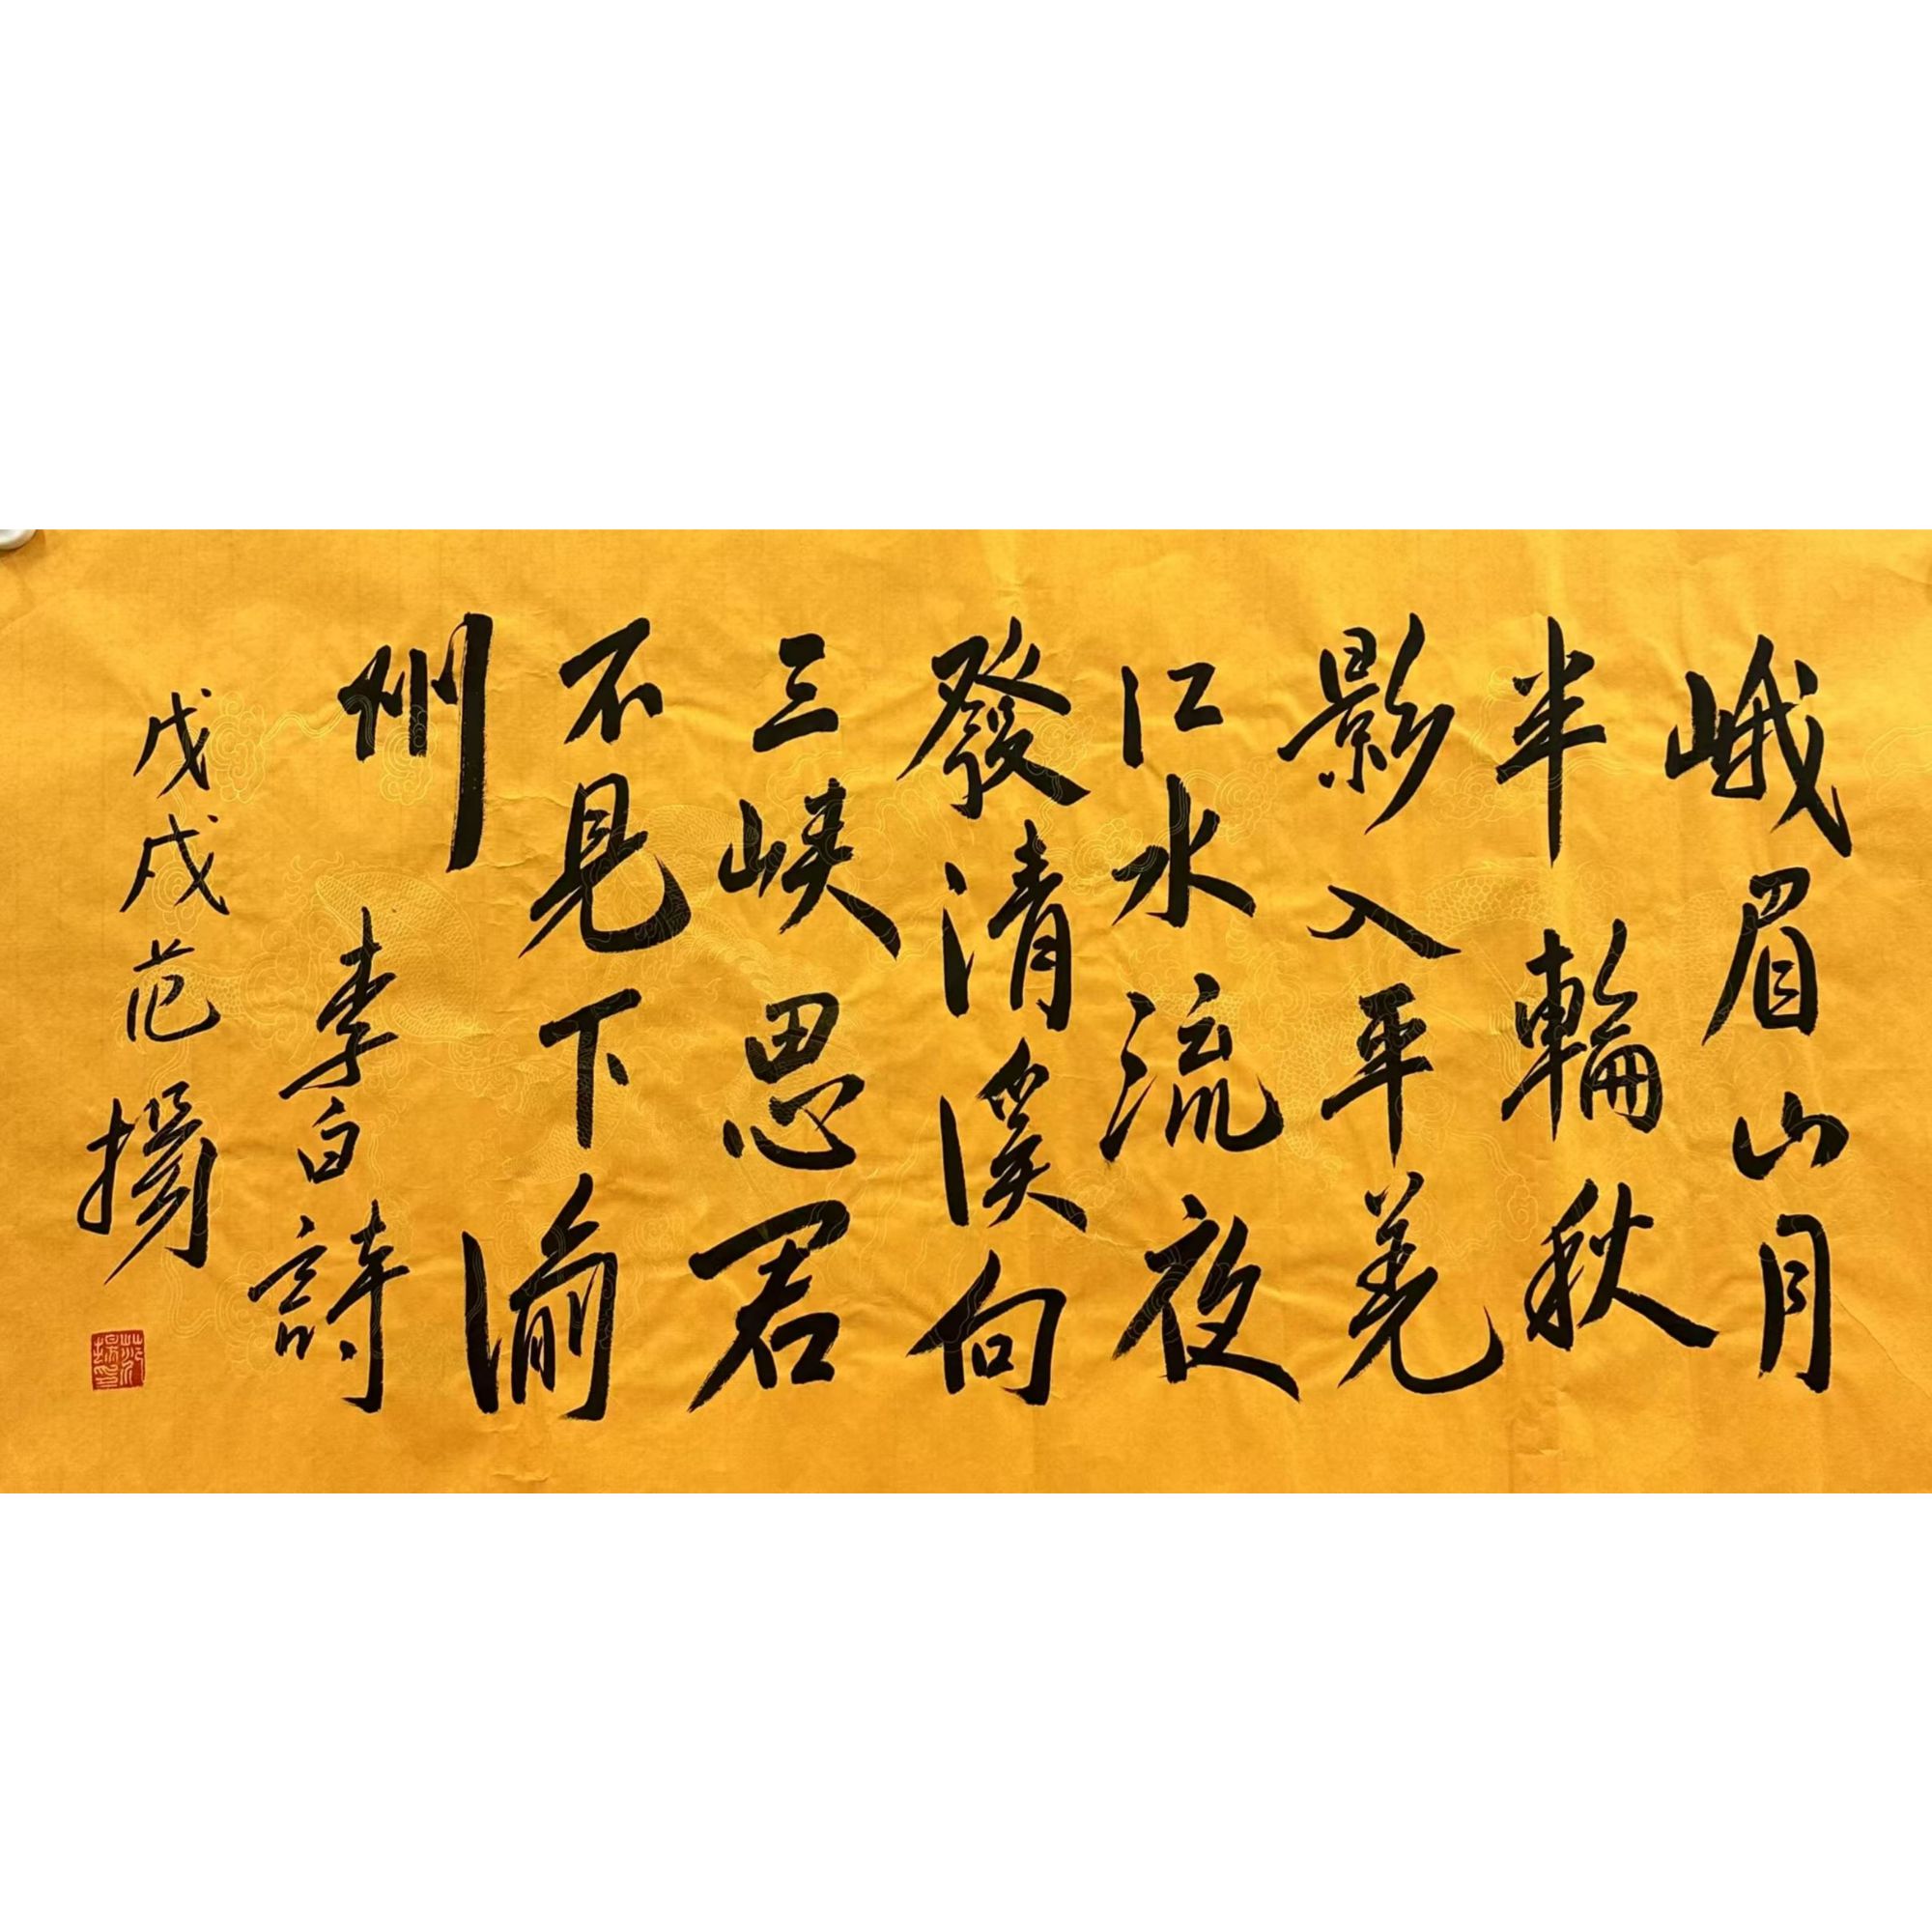 峨眉山月
半輪秋
影入平羌
江水流夜
發清溪向
三峽思君
不見下渝
州
李白詩
戊戌范揚
范揚印